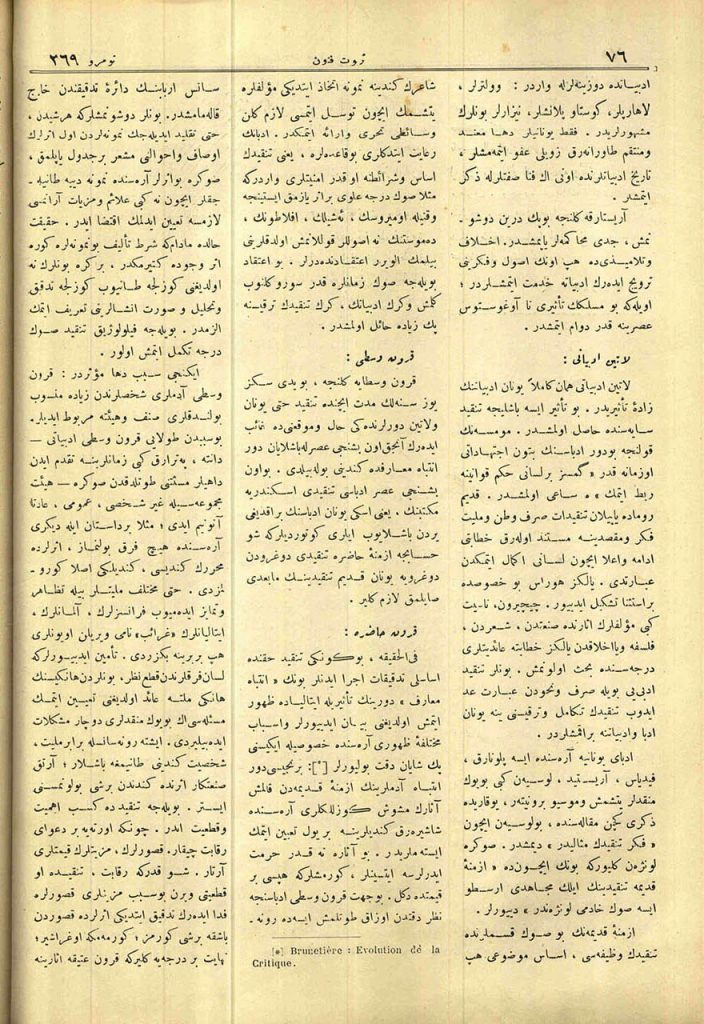 ٧٦
ثروت فنون
نومرو ٣٦٩
ادبیاتده دوزینه‌لرله واردر : وولترلر ،
لاهارپلر، كوستاو پلانشلر، نیزارلر بونلرك
مشهورلریدر. فقط یونانیلر دها معند
ومنتقم طاورانه‌رق زویلی عفو ایتمه‌مشلر ،
تاریخ ادبیاتلرنده اونی اك فنا صفتلرله ذكر
ایتمشلر .
آریستارقه كلنجه بویك درین دوشو ـ
نمش، جدی محاكمه‌لر یاپمشدر. اخلاف
وتلامیذی‌ده هپ اونك اصول وفكرینی
ترویج ایده‌رك ادبیاته خدمت ایتمشلردر ؛
اویله‌كه بو مسلكك تأثیری تا آوغوستوس
عصرینه قدر دوام ایتمشدر.
لاتین ادبیاتی :
لاتین ادبیاتی همان كاملاً یونان ادبیاتنك
زادهٔ تأثیریدر. بو تأثیر ایسه باشلیجه تنقید
سایه‌سنده حاصل اولمشدر. مومسه‌نك
قولنجه بودور ادباسنك بتون اجتهاداتی
اوزمانه قدر « گمسز برلسانی حكم قوانینه
ربط ایتمك » ه ساعی اولمشدر. قدیم
روماده یاپیلان تنقیدات صرف وطن وملیت
فكر ومقصدینه مستند اوله‌رق خطابتی
ادامه واعلا ایچون لسانی اكمال ایتمكدن
عبارتدی. یالكز هوراس بو خصوصده
براستثنا تشكیل ایدییور. چیچیرون، تاسیت
كبی مؤلفلرك آثارنده صنعتدن ، شعردن ،
فلسفه ویااخلاقدن یالكز خطابته عائدیتلری
درجه‌سنده بحث اولونمش. بونلر تنقید
ادبی‌یی بویله صرف ونحودن عبارت عد
ایدوب تنقیدك تكامل وترقیسنی ینه یونان
ادبا وادبیاتنه براقمشلردر.
ادبای یونانیه آره‌سنده ایسه پلوتارق ،
فیدیاس ، آریستید ، لوسیه‌ن كبی بویوك
منقدلر یتشمش وموسیو برونتیه‌ر، یوقاریده
ذكری كچن مقاله‌سنده ، بولوسیه‌ن ایچون
« فكر تنقیدك مثالیدر » دیمشدر. صوكره
لونژه‌ن كلیوركه بونك ایچون‌ده « ازمنهٔ
قدیمه تنقیدینك ایلك مجاهدی ارسطو
ایسه صوك خادمی لونژه‌ندر » دییورلر .
ازمنهٔ قدیمه‌نك بو صوك قسملرنده
تنقیدك وظیفه‌سی ، اساس موضوعی هپ
شاعرك كندینه نمونه اتخاذ ایتدیكی مؤلفلره
یتشمك ایچون توسل ایتمسی لازم كلن
وسائطی تحری وارائه ایتمكدر. ادبانك
رعایت ایتدكلری بوقاعده‌لره ، یعنی تنقیدك
اساس وشرائطنه او قدر امنیتلری واردركه
مثلا صوك درجه علوی براثر یازمق ایستینجه
وقتیله اومیروسك ، ئه‌شیلك ، افلاطونك ،
ده‌موستنك نه اصوللر قوللانمش اولدقلرینی
بیلمك الویرر اعتقادنده‌درلر . بو اعتقاد
بویله‌جه صوك زمانلره قدر سوروكلنوب
كلمش وكرك ادبیاتك ، كرك تنقیدك ترقیسنه
پك زیاده حائل اولمشدر .
قرون وسطی :
قرون وسطایه كلنجه ، بویدی سكز
یوز سنه‌لك مدت ایچنده تنقید حتی یونان
ولاتین دورلرنده‌كی حال وموقعنی‌ده غائب
ایده‌رك آنجق‌اون بشنجی عصرله‌باشلایان دور
انتباه معارفده كندینی بوله‌بیلدی . بواون
بشنجی عصر ادباسی تنقیدی اسكندریه
مكتبنك . یعنی اسكی یونان ادباسنك براقدیغی
یردن باشلایوب ایلری كوتوردیلركه شو
حسابجه ازمنهٔ حاضره تنقیدی دوغرودن
دوغرویه یونان قدیم تنقیدینك مابعدی
صایلمق لازم كلیر .
قرون حاضره :
فی‌الحقیقه ، بوكونكی تنقید حقنده
اساسلی تدقیقات اجرا ایدنلر بونك « انتباه
معارف » دورینك تأثیریله ایتالیاده ظهور
ایتمش اولدیغنی بیان ایدییورلر واسباب
مختلفهٔ ظهوری آره‌سنده خصوصیله ایكیسنی
پك شایان دقت بولیورلر [*]: برنجیسی دور
انتباه آدملرینك ازمنهٔ قدیمه‌دن قالمش
آثارك مشوش كوزللكلری آره‌سنده
شاشیره‌رق كندیلرینه بر یول تعیین ایتمك
ایسته‌ملریدر. بو آثاره نه قدر حرمت
ایدرلرسه ایتسینلر ، كورمشلركه هپسی بر
قیمتده دكل . بوجهت قرون وسطی ادباسنجه
نظر دقتدن اوزاق طوتلمش ایسه‌ده رونه‌ـ
[*] Brunetière : Evolution de la
Critique.
سانس اربابنك دائرهٔ تدقیقندن خارج
قاله‌مامشدر. بونلر دوشونمشلركه هرشیدن،
حتی تقلید ایدیله‌جك نمونه‌لردن اول اثرلرك
اوصاف واحوالنی مشعر برجدول یاپلمق ،
صوكره بواثرلر آره‌سنده نمونه دییه طانیله ـ
جقلر ایچون نه كبی علائم ومزیات آرانمسی
لازمسه تعیین ایدلمك اقتضا ایدر. حقیقت
حالده مادامكه شرط تألیف بونمونه‌لره كوره
اثر وجوده كتیرمكدر، بركره بونلرك نه
اولدیغنی كوزلجه طانیوب كوزلجه تدقیق
وتحلیل و صورت انشالرینی تعریف ایتمك
الزمدر. بویله‌جه فیلولوژیق تنقید صوك
درجه تكمل ایتمش اولور .
ایكنجی سبب دها مؤثردر : قرون
وسطی آدملری شخصلرندن زیاده منسوب
بولندقلری صنف وهیئته مربوط ایدیلر.
بوسببدن طولایی قرون وسطی ادبیاتی —
دانته ، په‌ترارق كبی زمانلرینه تقدم ایدن
داهیلر مستثنی طوتلدقدن صوكره — هیئت
مجموعه‌سیله غیر شخصی ، عمومی ، عادتا
آنونیم ایدی ؛ مثلا برداستان ایله دیگری
آره‌سنده هیچ فرق بولنماز ، اثرلرده
محررك كندیسی ، كندیلكی اصلا كورو ـ
لمزدی . حتی مختلف ملیتلر بیله تظاهر
وتمایز ایده‌میوب فرانسزلرك ، آلمانلرك ،
ایتالیانلرك «غرائب» نامی ویریلن اویونلری
هپ بربرینه بكزردی. تأمین ایدییورلركه
لسان فرقلرندن قطع نظر، بونلردن هانكیسنك
هانكی ملته عائد اولدیغنی تعیین ایتمك
مسئله‌سی اك بویوك منقدلری دوچار مشكلات
ایده‌بیلیردی. ایشته رونه‌سانسله برابر ملیت،
شخصیت كندینی طانیمغه باشلار ؛ آرتق
صنعتكار اثرنده كندندن برشی بولونمسنی
ایستر . بویله‌جه تنقیدده كسب اهمیت
وقطعیت ایدر. چونكه اورته‌یه بر دعوای
رقابت چیقار. قصورلرك ، مزیتلرك قیمتلری
آرتار . شو قدركه رقابت ، تنقیده او
قطعیتی ویرن بوسبب مزیتلری قصورلره
فدا ایده‌رك تدقیق ایتدیكی اثرلرده قصوردن
باشقه برشی كورمز ؛ كورمه‌مكه اوغراشیر؛
نهایت بر درجه‌یه كلیركه قرون عتیقه آثارینه